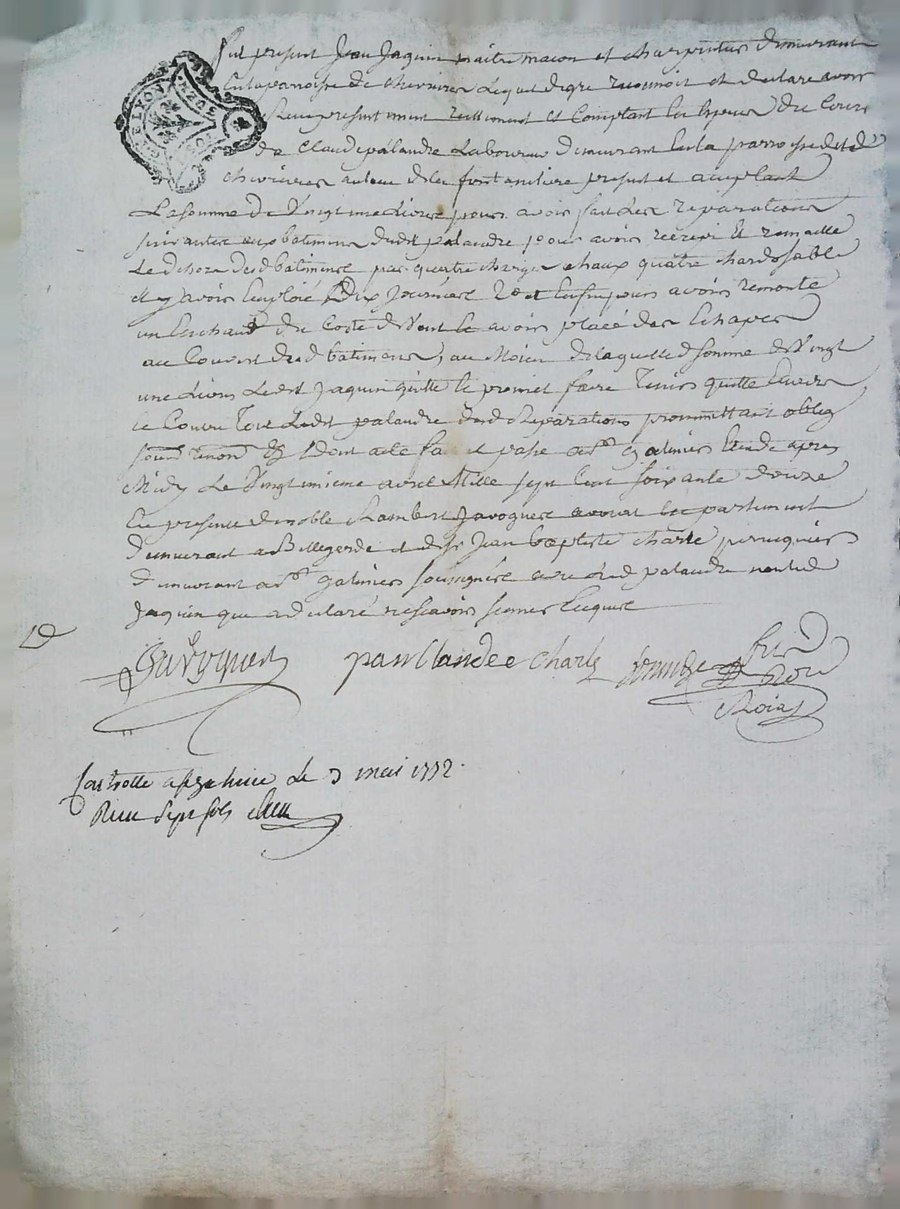 fut present Jean Jaquin maitre macon et charpentier demeurant
en la paroisse de chevrieres Lequel de gre reconnoit et declare avoir
Receu presentement reellement et comptant en especes du Cours
de Claude palandre Laboureur demeurant en la parroisse dud
chevrieres au lieu de la fontaniliere present et acceptant
La somme de Vingt une Livre pour avoir fait Les reparations
suivantes aux batimens dudit palandre pour avoir recrepi et remaille
Le dehors desd batimens par quatre charges chaux quatre chards sable
et y avoir Emploié Dix Journées et Enfin pour avoir remonté
un du Coste de Vent le avoir placé des Echapes
au Couvert desd batimens, au Moien de laquelle d somme de Vingt
une Livres Ledit Jaquin quitte et promet faire Tenir quitte Envers
et Contre Tous Ledit palandre desd Reparations promettant oblig
soum renon & Dont acte fait et passé a St galmier Etude apres
Midy Le Vingtunieme avril Mille sept Cent soixante douze
En presence de noble Rambert Javogues avocat en parlement
demeurant a Bellegarde et de sr Jean baptiste charle peruquier
demeurant a St galmier soussignés avec Led palandre non led
Jaquin que a declaré ne sçavoir signer Enquis
Javogues palandre Charle
Roial
Controllé a St galmier Le 3 mai 1772.
Reçu sept sols
LYON